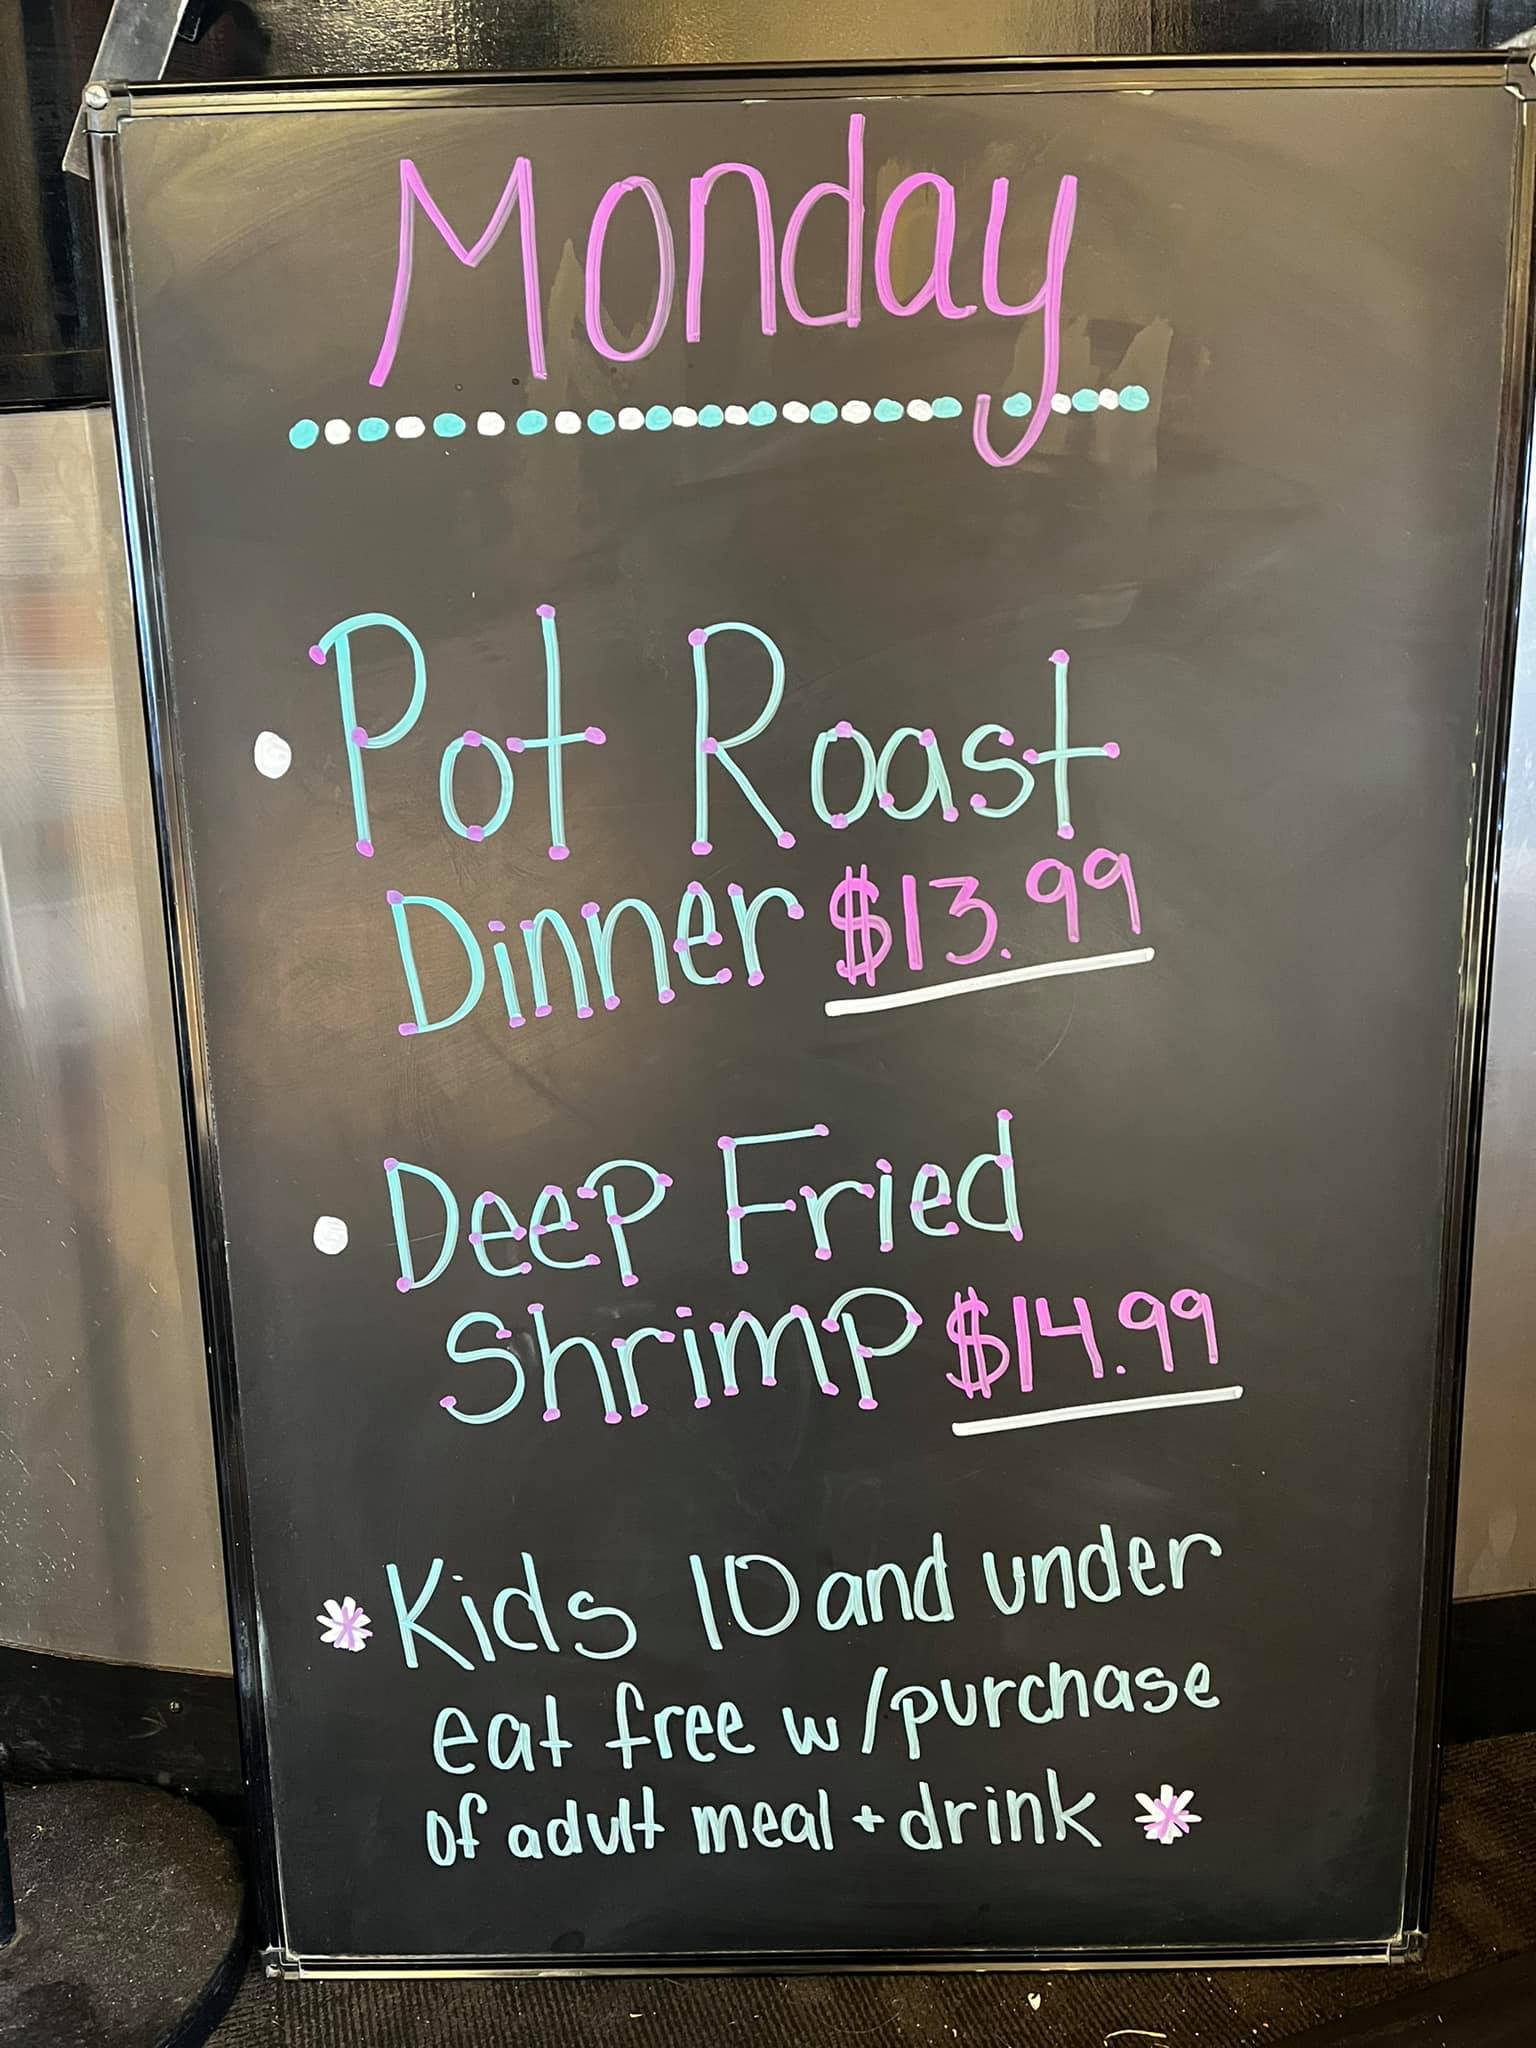 Monday
• Pot Roast
Dinner $13.99
• Deep Fried
Shrimp $14.99
* Kids 10 and under
eat free w/purchase
of adult meal + drink *